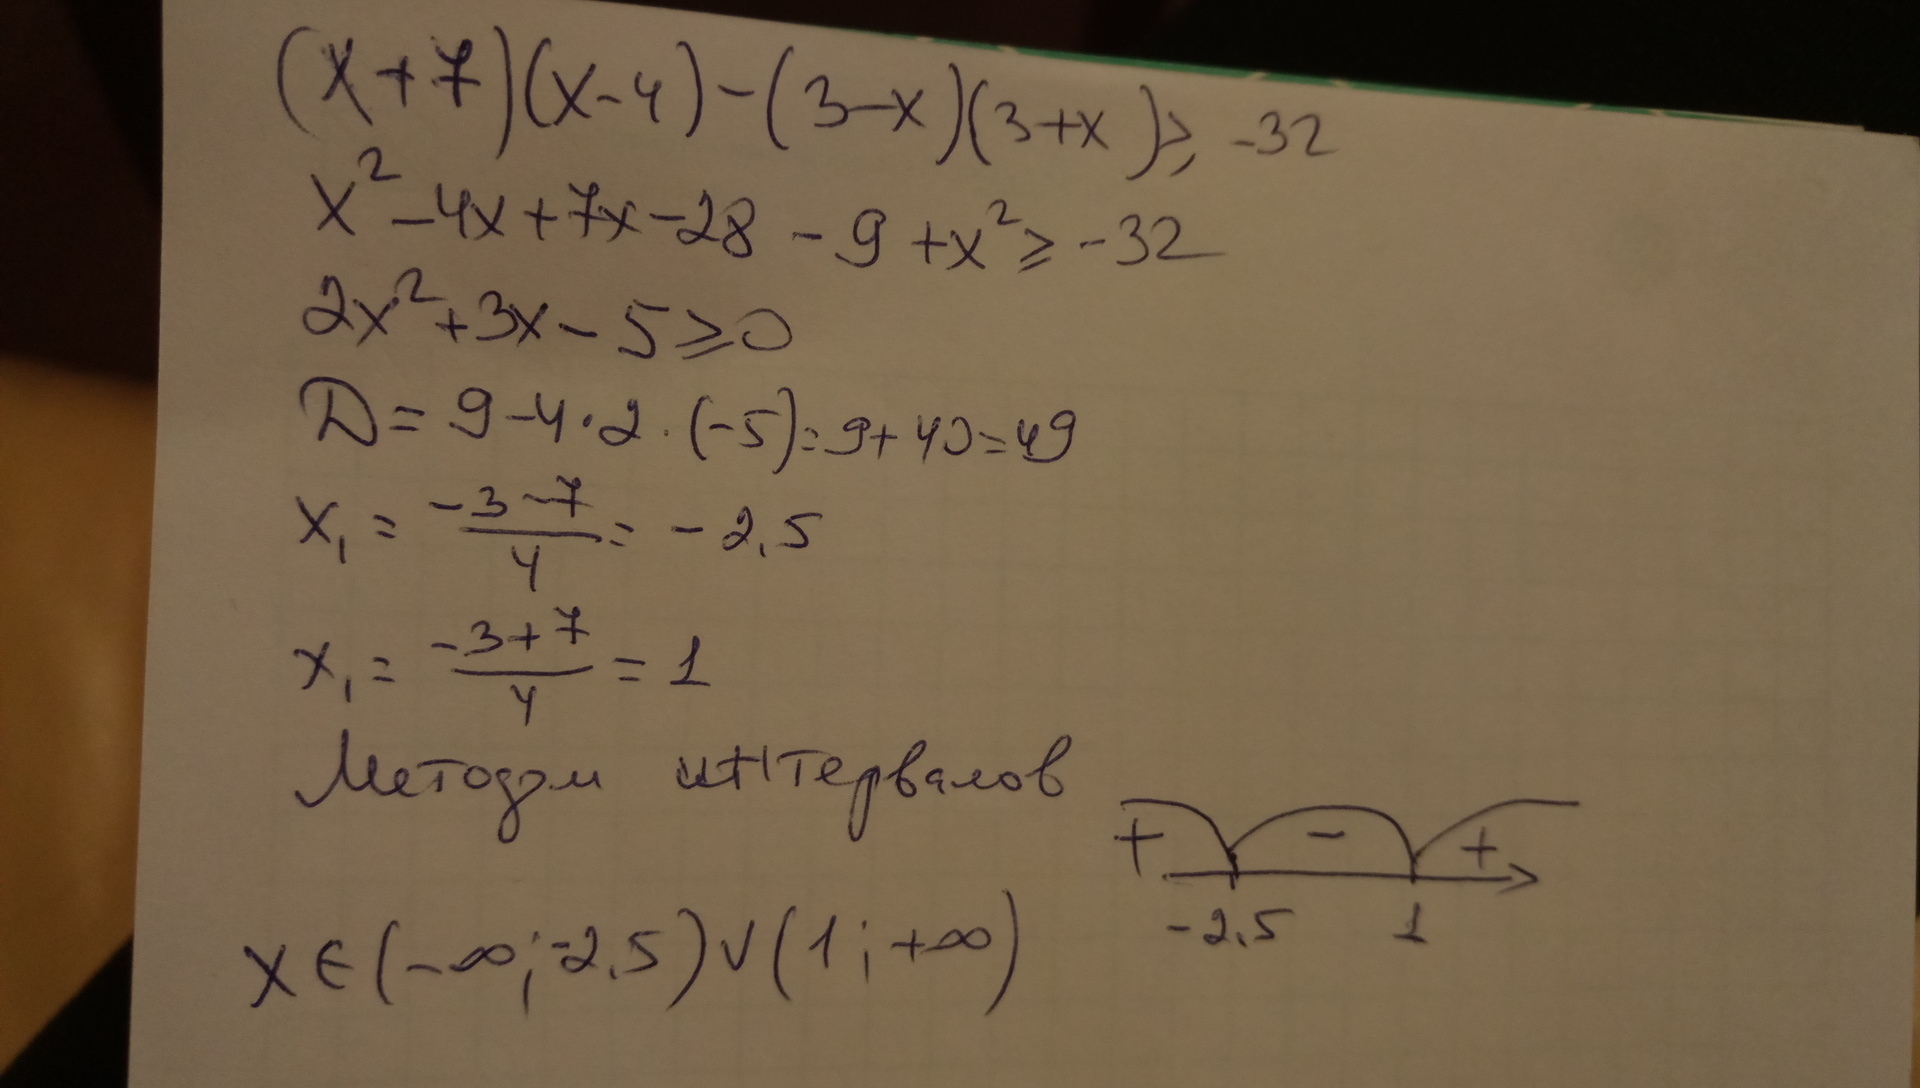 (x+7)(x-4)-(3-x)(3+x)≥-32
x²-4x+7x-28-9+x²≥-32
2x²+3x-5≥0
D=9-4·2·(-5)=9+40=49
x₁=(-3-7)/4=-2,5
x₁=(-3+7)/4=1
Методом интервалов
+ - +
-2,5 1
x∈(-∞;-2,5)∪(1;+∞)